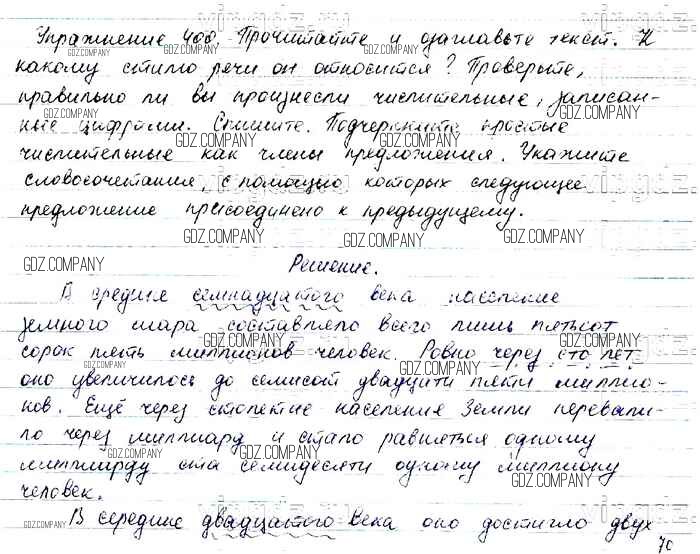 Упражнение 468. Прочитайте и озаглавьте текст. К
какому стилю речи он относится? Проверьте,
правильно ли вы произнесли числительные, записан-
ные цифрами. Спишите. Подчеркните простые
числительные как члены предложения. Укажите
словосочетания, с помощью которых следующее
предложение присоединено к предыдущему.
Решение.
В средине семнадцатого века население
земного шара составляло всего лишь пятьсот
сорок пять миллионов человек. Ровно через сто лет
оно увеличилось до семисот двадцати пяти миллио-
нов. Ещё через столетие население Земли перевали-
ло через миллиард и стало равняться одному
миллиарду ста семидесяти одному миллиону
человек.
В середине двадцатого века оно достигло двух
70
GDZ.COMPANY